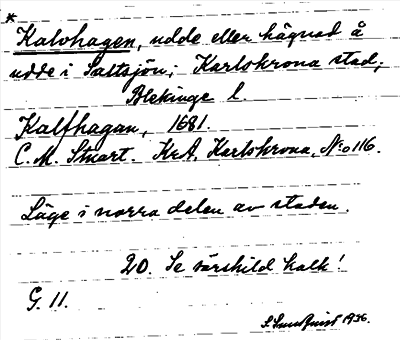 * Kalvhagen, udde eller hägnad å
udde i Saltsjön; Karlskrona stad;
Blekinge l.
Kalfhagan, 1681.
C. M. Stuart. KrA, Karlskrona, N:o 116.
Läge i norra delen av staden.
20. Se särskild kalk!
G. 11.
S. Sundquist 1936.